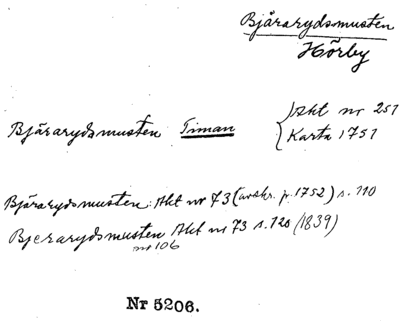 Bjärarydsmusten
Hörby
Bjärarydsmusten Timan { Akt nr 251
Karta 1751
Bjärarydsmusten: Akt nr 73 (avskr. p. 1752) s. 110
Bjerarydsmusten Akt nr 73 s. 120 (1839)
nr 106
Nr 5206.